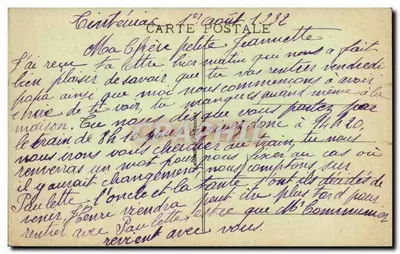 Tinténiac 1er août 1932
CARTE POSTALE
Ma Chère petite Jeannette
J'ai reçu ta lettre hier matin qui nous a fait
bien plaisir de savoir que tu vas rentrer vendredi
papa ainsi que moi nous commençons à avoir
de te voir, tu manques quand même à la
maison. Tu nous dis que vous partez par
le train de donc à 4h20,
nous irons vous chercher au train, tu nous
renverras un mot pour nous fixer au cas où
il y aurait changement nous comptons sur
Paulette l'oncle et la tante ont ils décidés de
venir, Henri viendra peut être plus tard pour
rentrer avec Paulette, est ce que Mr
revient avec vous.